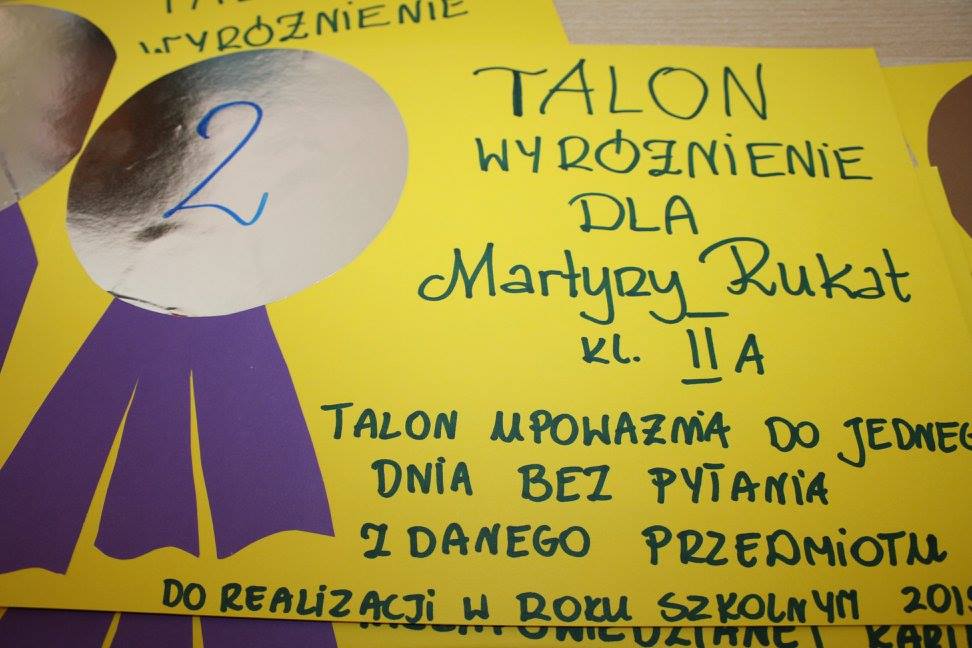 WYRÓŻNIENIE
2
TALON
WYRÓŻNIENIE
DLA
Martyny Rukat
kl. II A
TALON UPOWAŻNIA DO JEDNEG
DNIA BEZ PYTANIA
Z DANEGO PRZEDMIOTU
DO REALIZACJI W ROKU SZKOLNYM 2019